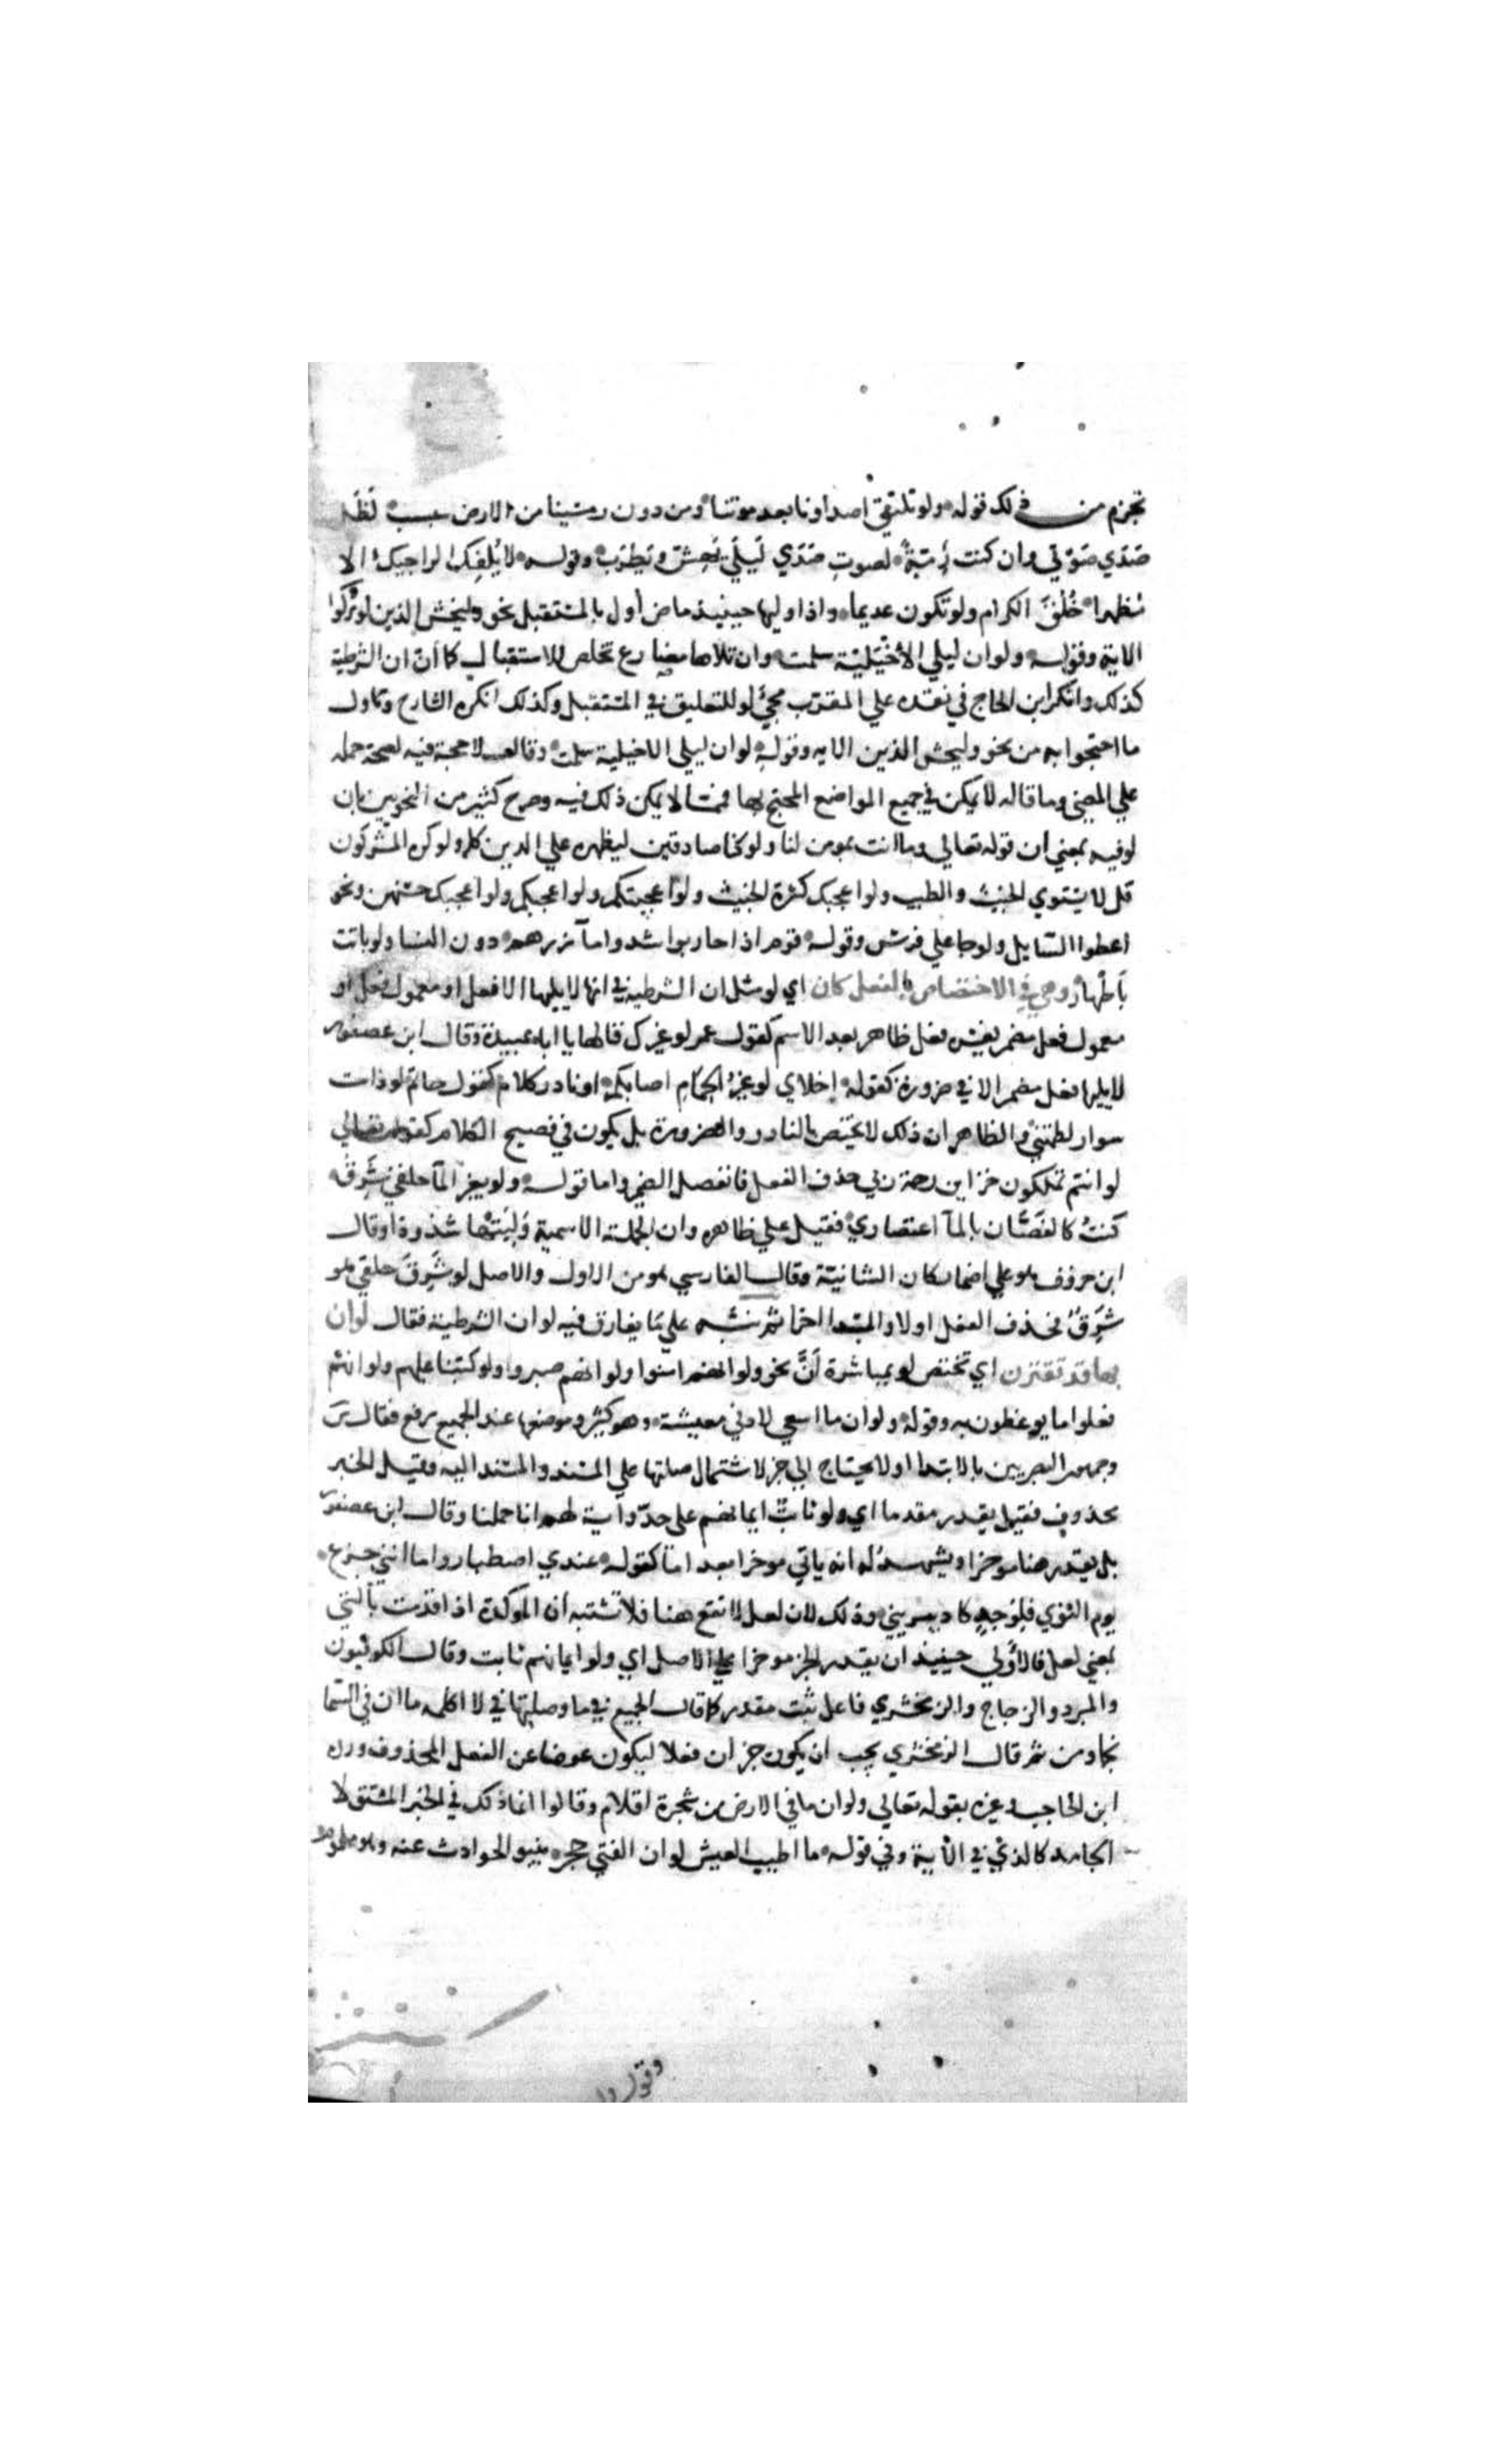 تجزم من ذلك قوله ولو تلتقي اصداونا بعد موتنا ومن دون رمسينا من الارض سبسب لظل
صدي صوتي وان كنت رمة لصوت صدي ليلي يهش ويطرب وقوله لا يلفك الراجيك الا
مظهرا خلق الكرام ولو تكون عديما واذا وليها حينيذ ماض أول بالمستقبل نحو وليخش الذين لو تركوا
الاية وقوله ولو ان ليلي الأخيلية سلمت وان تلاها مضارع تخلص للاستقبال كما ان ان الشرطية
كذلك وانكر ابن الحاج في نقده علي المقرب مجي لو للتعليق في المستقبل وكذلك انكره الشارح وتاول
ما احتجوا به من نحو وليخش الذين الايه وقوله لو ان ليلي الاخيلية سلمت وقال لا حجة فيه لصحة حمله
علي المضي وما قاله لا يمكن في جميع المواضع المحتج بها فمما لا يمكن ذلك فيه وصرح كثير من النحويين بان
لو فيه بمعني ان قوله تعالي وما انت بمومن لنا ولو كنا صادقين ليظهره علي الدين كله ولو كره المشركون
قل لا يستوي الخبيث والطيب ولو اعجبك كثرة الخبيث ولو اعجبتكم ولو اعجبكم ولو اعجبك حسنهن ونحو
اعطوا السايل ولو جا علي فرس وقوله قوم اذا حاربوا شدوا مآزرهم دون النسا ولو باتت
بأطهار وهي في الاختصاص بالفعل كان اي لو مثل ان الشرطيه في انها لا يليها الا فعل او معمول فعل او
معمول فعل مضمر يفسره فعل ظاهر بعد الاسم كقول عمر لو غيرك قالها يا ابا عبيدة وقال ابن عصفور
لا يليها فعل مضمر الا في ضرورة كقوله إخلاي لو غير الحمام اصابكم او نادر كلام كقول حاتم لو ذات
سوار لطمتني والظاهر ان ذلك لا يختص بالنادر والضرورة بل يكون في فصيح الكلام كقوله تعالي
لو انتم تملكون خزاين رحمة ربي حذف الفعل فانفصل الضمير واما قوله ولو بغير المآ حلقي شرق
كنت كالغصان بالمآ اعتصاري فقيل علي ظاهره وان الجملة الاسمية وليتها شذوذا وقال
ابن خروف هو علي اضمار كان الشانية وقال الفارسي هو من الاول والاصل لو شرق حلقي هو
شرق فحذف الفعل اولا والمبتدا اخرا ثم نبه علي ما يفارق فيه لو ان الشرطية فقال لو ان
بها قد تقترن اي تختص لو بمباشرة أنَّ نحو ولو انهم امنوا ولو انهم صبروا ولو كتبنا عليهم ولو انهم
فعلوا ما يوعظون به وقوله ولو ان ما اسعي لادني معيشة وهو كثير وموضعها عند الجميع رفع فقال س
وجمهور البصريين بالابتدا ولا يحتاج الي خبر لاشتمال صلتها علي المسند والمسند اليه وقيل الخبر
محذوف فقيل يقدر مقدما اي ولو ثابت ايمانهم علي حد وآية لهم انا حملنا وقال ابن عصفور
بل يقدر هنا موخرا ويشهد له انه ياتي موخرا بعد اما كقوله عندي اصطبار واما انني جزع
يوم النوي فلوجد كاد يبريني وذلك لان لعل لا تقع هنا فلا تشتبه ان الموكدة اذا قدمت بالتي
بمعني لعل فالأولي حينيذ ان يقدر الخبر موخرا علي الاصل اي ولو ايمانهم ثابت وقال الكوفيون
والمبرد والزجاج والزمخشري فاعل ثبت مقدر كما قال الجميع في ما وصلتها في لا اكلمه ما ان في السما
نجما ومن ثم قال الزمخشري يجب ان يكون خبر ان فعلا ليكون عوضا عن الفعل المحذوف ورده
ابن الحاجب وغيره بقوله تعالي ولو ان ما في الارض من شجرة اقلام وقالوا انما ذلك في الخبر المشتق لا
الجامد كالذي في الآية وفي قوله ما اطيب العيش لو ان الفتي حجر تنبو الحوادث عنه وهو ملموم